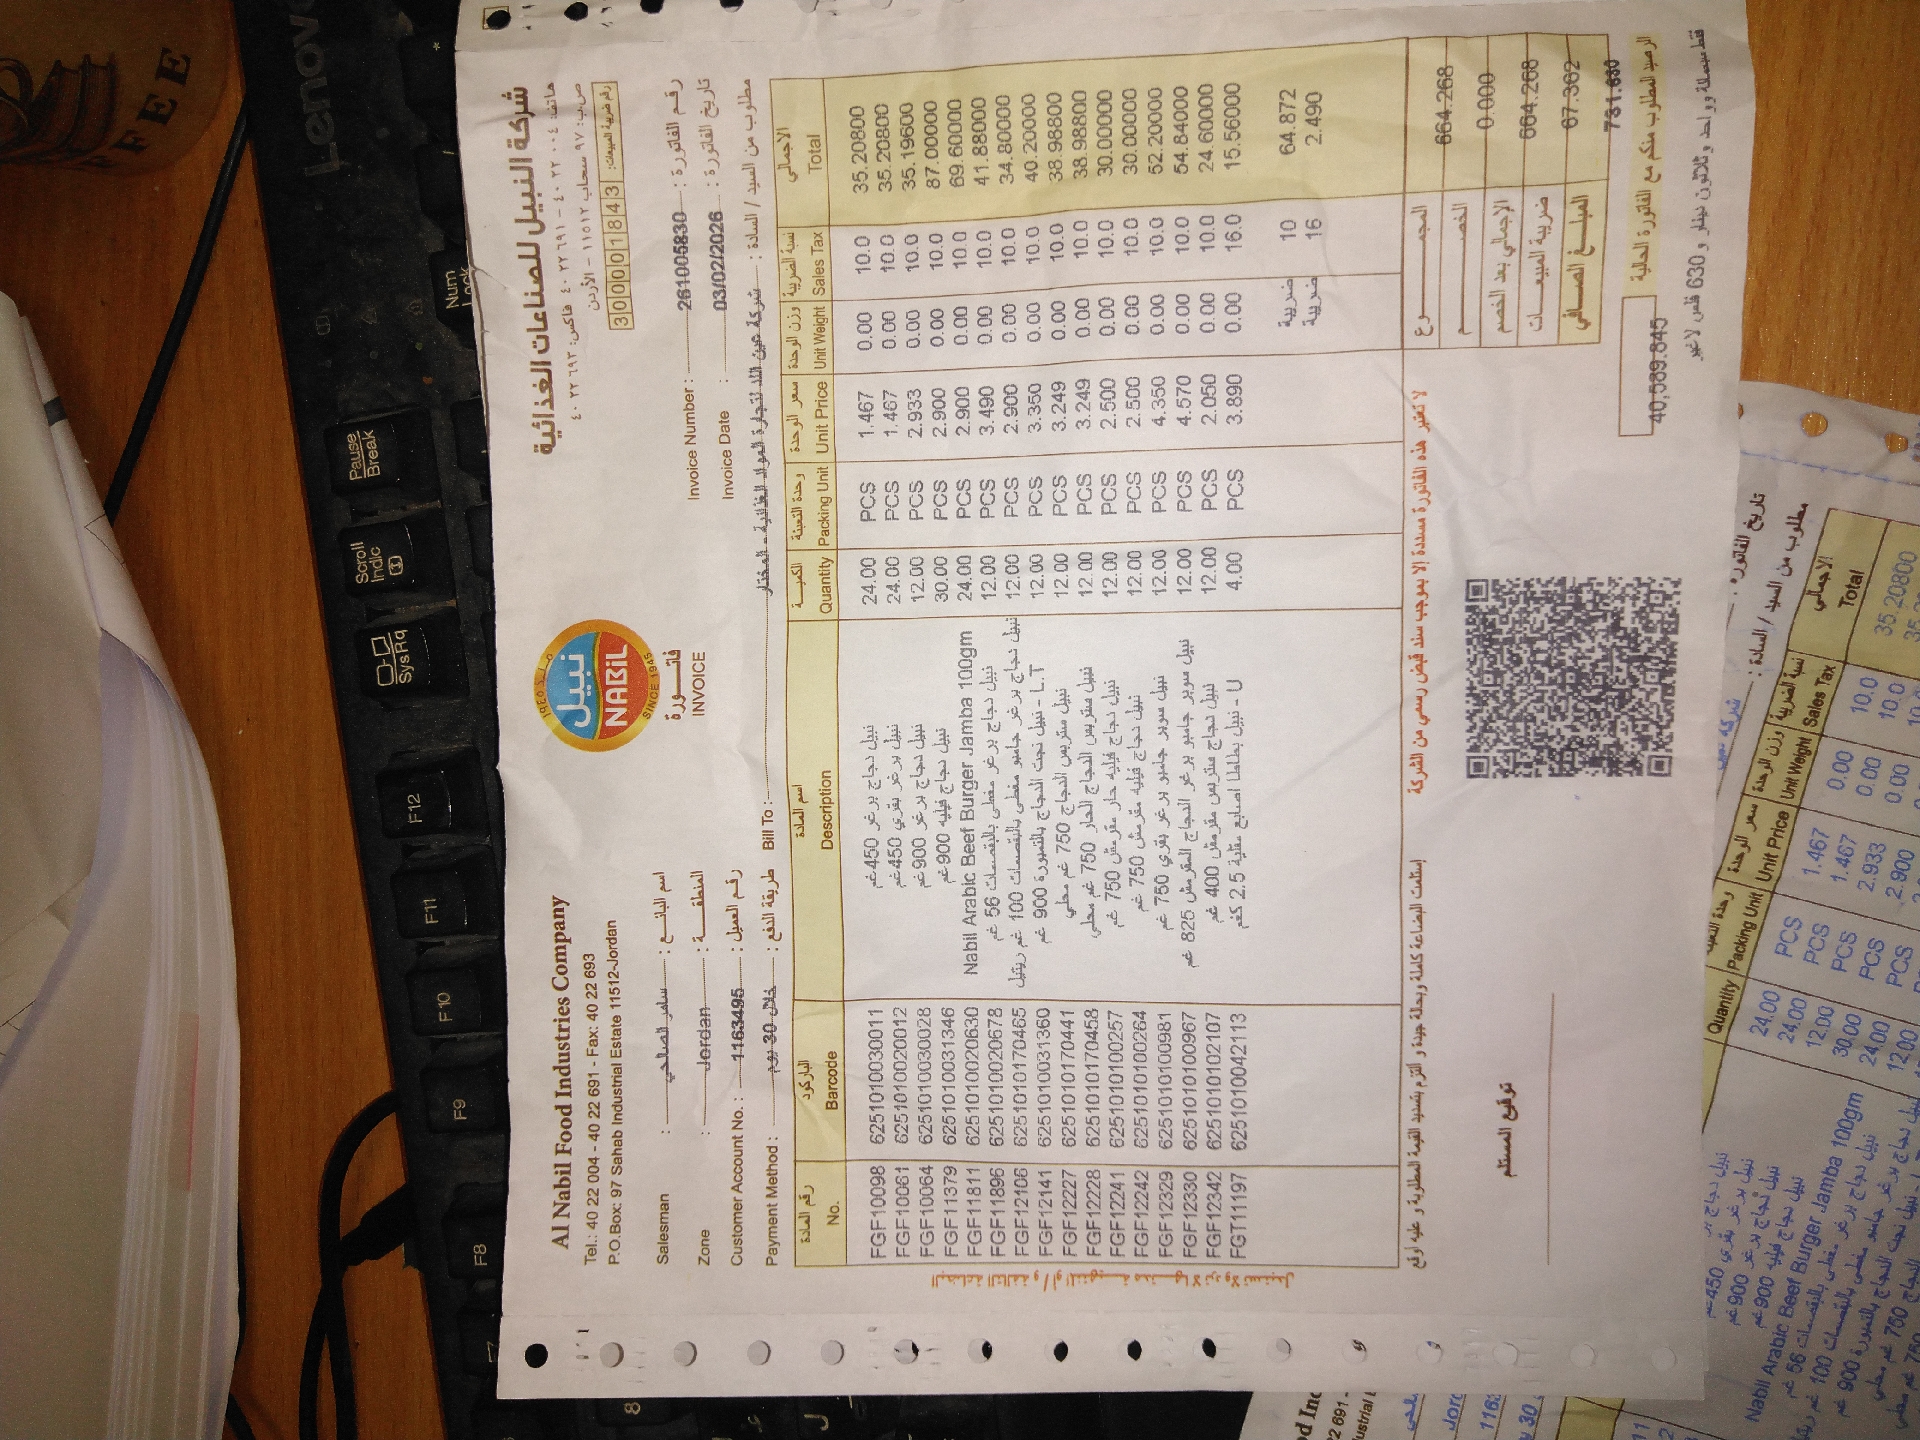 شركة النبيل للصناعات الغذائية
هاتف: ٤٠٢٢٠٠٤ - ٤٠٢٢٦٩١ فاكس: ٤٠٢٢٦٩٣
ص.ب: ٩٧ سحاب ١١٥١٢ - الأردن
رقم ضريبة المبيعات: 300001843
Al Nabil Food Industries Company
Tel.: 40 22 004 - 40 22 691 - Fax: 40 22 693
P.O.Box: 97 Sahab Industrial Estate 11512-Jordan
نبيل
NABIL
SINCE 1945
فاتـــورة
INVOICE
Salesman : سامر الصالحي : اسم البائع
Zone : Jordan : المنطقة
Customer Account No. : 1163495 : رقم العميل
Payment Method : خلال 30 يوم : طريقة الدفع
Invoice Number : 261005830 : رقم الفاتورة
Invoice Date : 03/02/2026 : تاريخ الفاتورة
Bill To : شركة عين اللد لتجارة المواد الغذائية - المختار : مطلوب من السيد / السادة
رقم المادة الباركود اسم المادة الكمية وحدة التعبئة سعر الوحدة وزن الوحدة نسبة الضريبة الاجمالي
No. Barcode Description Quantity Packing Unit Unit Price Unit Weight Sales Tax Total
FGF10098 6251010030011 نبيل دجاج برغر 450غم 24.00 PCS 1.467 0.00 10.0 35.20800
FGF10061 6251010020012 نبيل برغر بقري 450غم 24.00 PCS 1.467 0.00 10.0 35.20800
FGF10064 6251010030028 نبيل دجاج برغر 900غم 12.00 PCS 2.933 0.00 10.0 35.19600
FGF11379 6251010031346 نبيل دجاج فيليه 900غم 30.00 PCS 2.900 0.00 10.0 87.00000
FGF11811 6251010020630 Nabil Arabic Beef Burger Jamba 100gm 24.00 PCS 2.900 0.00 10.0 69.60000
FGF11896 6251010020678 نبيل دجاج برغر مغطى بالبقسمات 56 غم 12.00 PCS 3.490 0.00 10.0 41.88000
FGF12106 6251010170465 نبيل دجاج برغر جامبو مغطى بالبقسمات 100 غم ريتيل 12.00 PCS 2.900 0.00 10.0 34.80000
FGF12141 6251010031360 نبيل نجت الدجاج بالتمبورة 900 غم - L.T 12.00 PCS 3.350 0.00 10.0 40.20000
FGF12227 6251010170441 نبيل ستربس الدجاج 750 غم محلي 12.00 PCS 3.249 0.00 10.0 38.98800
FGF12228 6251010170458 نبيل ستربس الدجاج الحار 750 غم محلي 12.00 PCS 3.249 0.00 10.0 38.98800
FGF12241 6251010100257 نبيل دجاج فيليه حار مقرمش 750 غم 12.00 PCS 2.500 0.00 10.0 30.00000
FGF12242 6251010100264 نبيل دجاج فيليه مقرمش 750 غم 12.00 PCS 2.500 0.00 10.0 30.00000
FGF12329 6251010100981 نبيل سوبر جامبو برغر بقري 750 غم 12.00 PCS 4.350 0.00 10.0 52.20000
FGF12330 6251010100967 نبيل سوبر جامبو برغر الدجاج المقرمش 825 غم 12.00 PCS 4.570 0.00 10.0 54.84000
FGF12342 6251010102107 نبيل دجاج ستربس مقرمش 400 غم 12.00 PCS 2.050 0.00 10.0 24.60000
FGT11197 6251010042113 نبيل بطاطا اصابع مقلية 2.5 كغم - U 4.00 PCS 3.890 0.00 16.0 15.56000
ضريبة 10 64.872
ضريبة 16 2.490
إستلمت البضاعة كاملة وبحالة جيدة و ألتزم بتسديد القيمة المطلوبة و عليه أوقع
لا تعتبر هذه الفاتورة مسددة إلا بموجب سند قبض رسمي من الشركة
المجمـــوع 664.268
الخصـــم 0.000
الإجمالي بعد الخصم 664.268
ضريبة المبيعـات 67.362
المبلـــغ الصـــافي 731.630
الرصيد المطلوب منكم مع الفاتورة الحالية
40,589.845
فقط سبعمائة وواحد وثلاثون دينار و 630 فلس لا غير
توقيع المستلم
Lenovo
Num
Lock
Pause
Break
Scroll
Indic
SysRq
F12
F11
F10
F9
F8
8
تاريخ الفاتورة :
مطلوب من السيد / السادة :
Quantity Packing Unit Unit Price Unit Weight Sales Tax Total
24.00 PCS 1.467 0.00 10.0 35.20800
24.00 PCS 1.467 0.00 10.0
12.00 PCS 2.933 0.00
30.00 PCS 2.900
24.00 PCS
12.00
Nabil Arabic Beef Burger Jamba 100gm
FEE